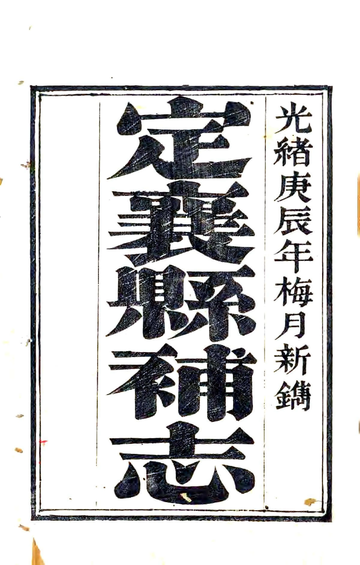 光緒庚辰年梅月新鐫
定襄縣補志